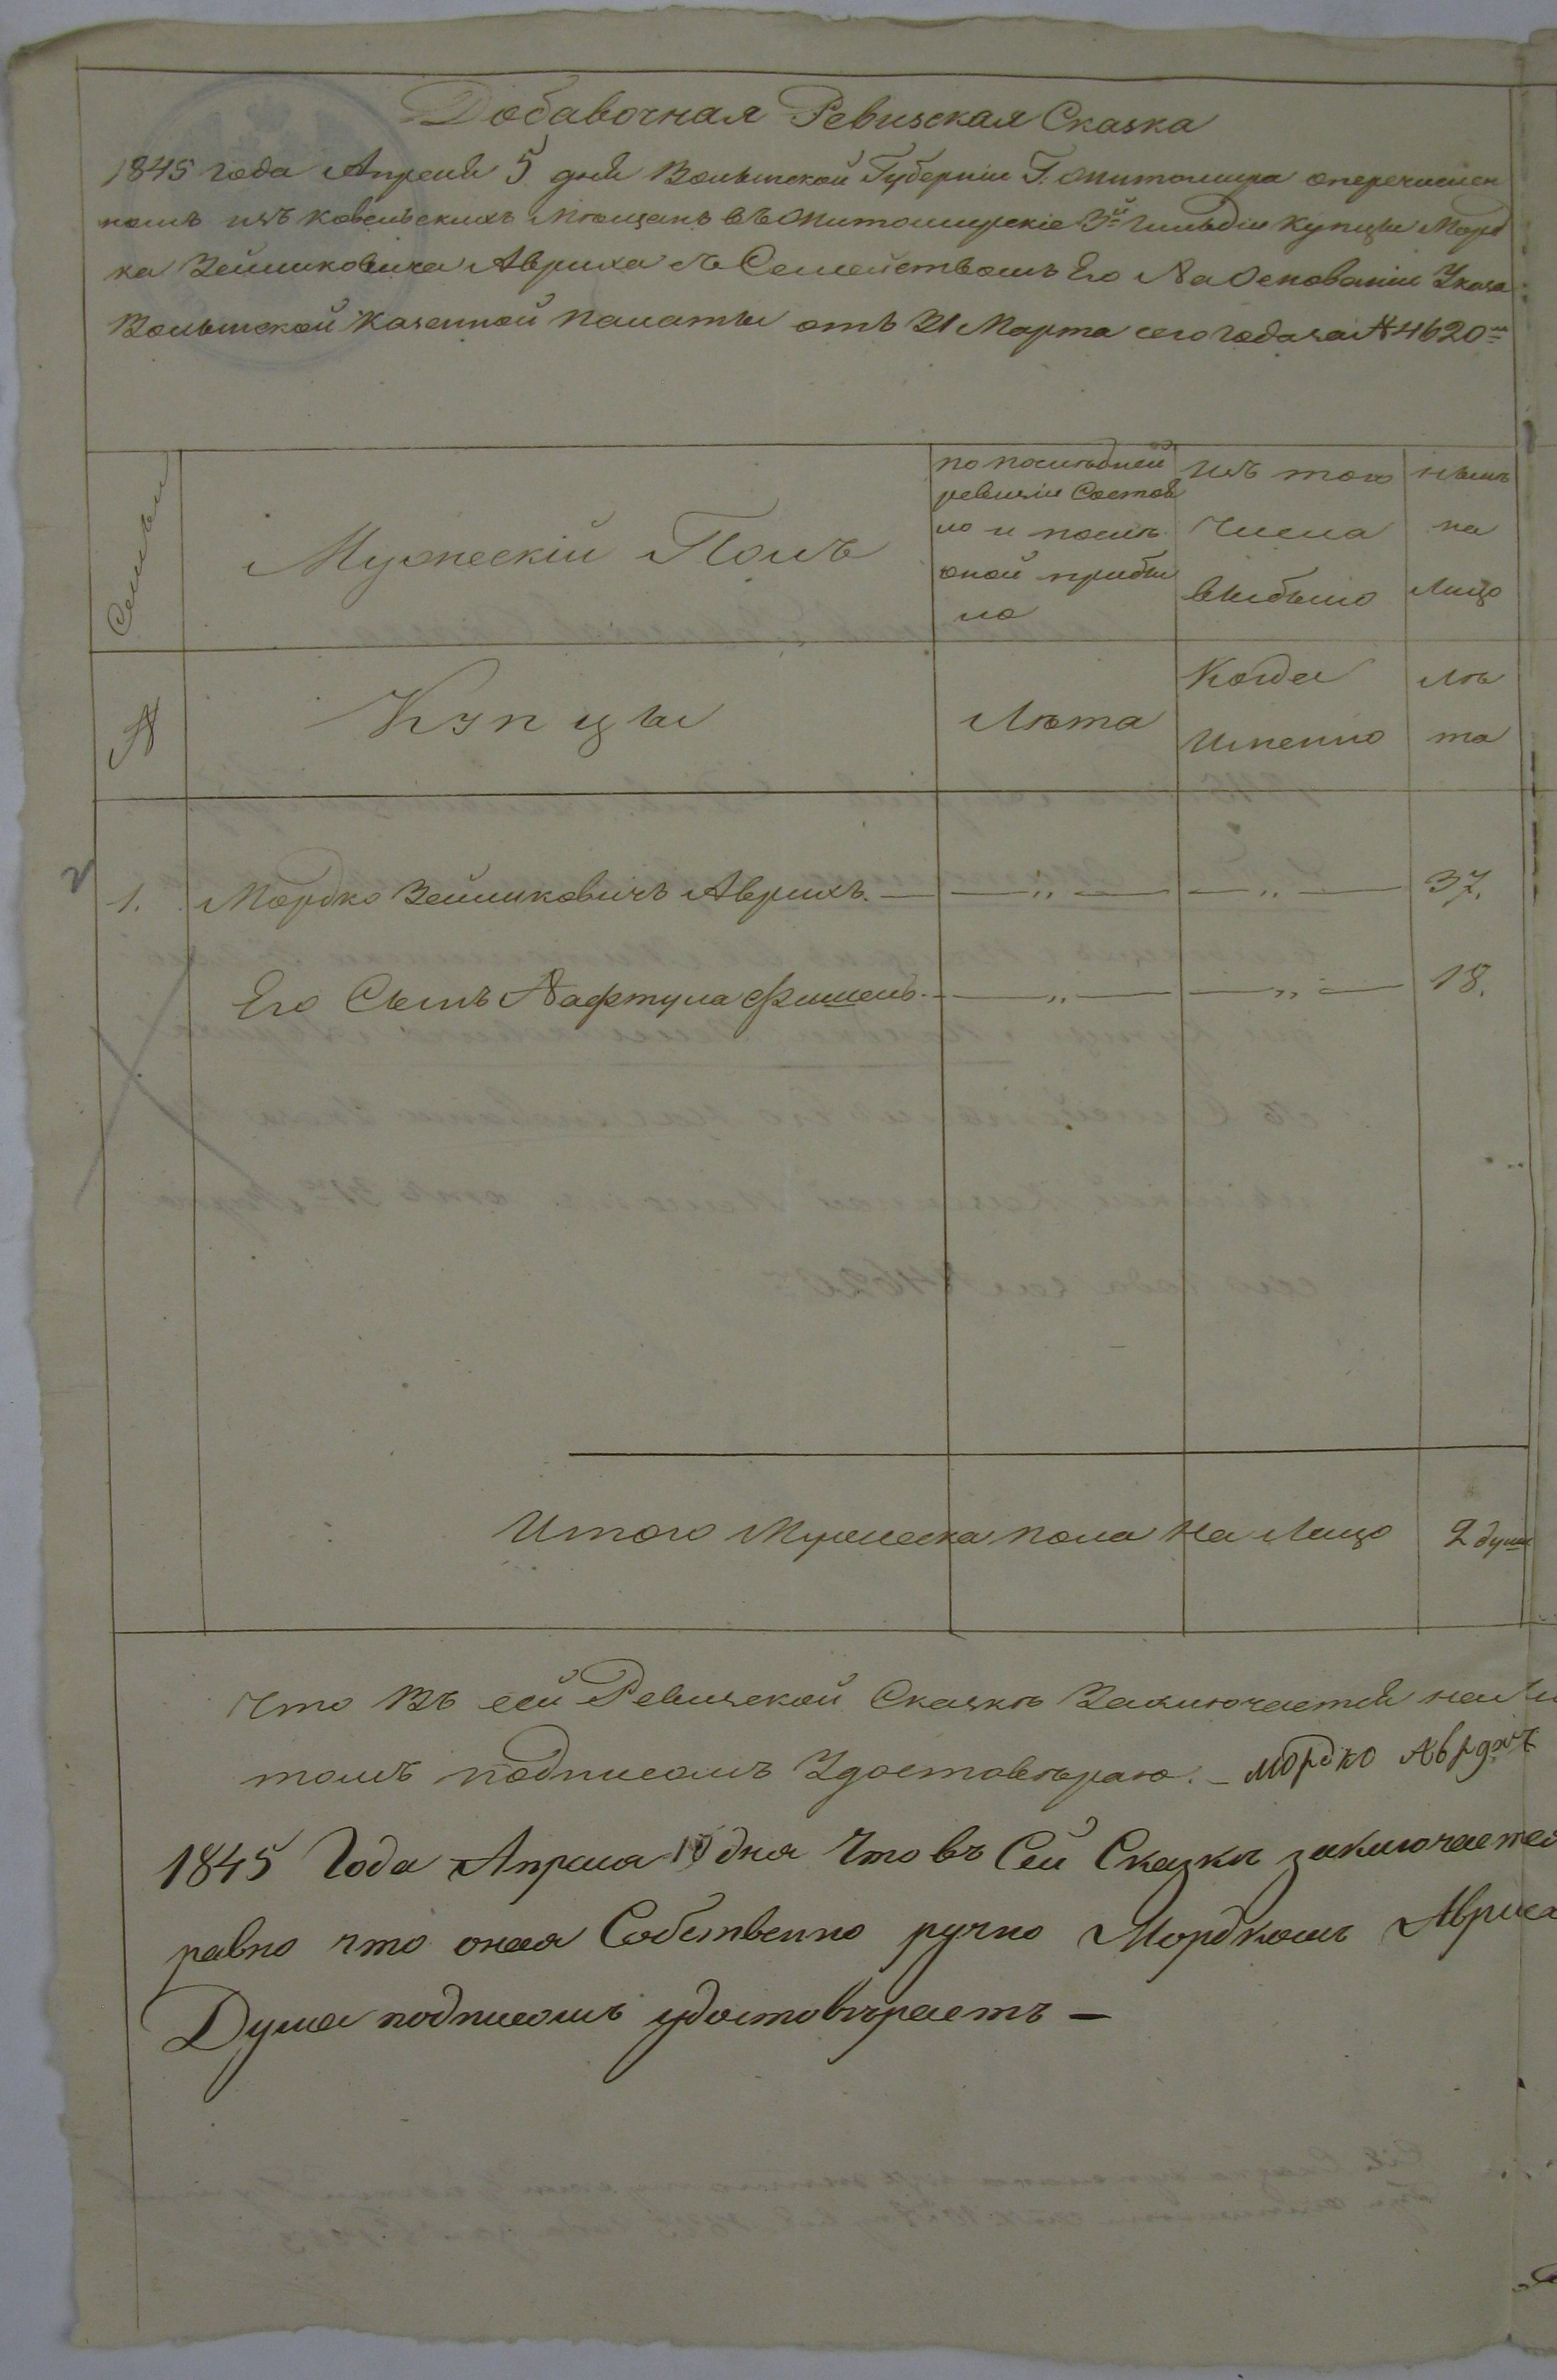 Добавочная Ревизская Сказка
1845 года Апреля 5 дня Волынской Губерніи Г. Житомира о перечислен
номъ изъ Ковельскихъ Мѣщанъ въ Житомирскіе 3й Гильдіи Купцы Морд
ка Зеликовича Авриха съ Семействомъ Его На Основаніи Указа
Волынской Казенной Палаты отъ 31 Марта сего года за № 4620м
Семьи
Мужескій Полъ
по послѣдней
ревизіи Состоя
ло и послѣ
оной прибы
ло
Изъ того
Числа
выбыло
нынѣ
на
Лицо
№
Купцы
Лѣта
Когда
Именно
Лѣ
та
1. Мордко Зеликовичъ Аврихъ. — „ — — „ — 37.
Его Сынъ Нафтула Фишель. — „ — — „ — 18.
Итого Мужеска пола На Лицо 2 души
Что Въ сей Ревизской Сказкѣ Заключается
томъ подписомъ Удостовѣряю. – Мордко
1845 Года Апреля 10 дня Что въ Сей Сказкѣ заключаетсо
равно что оная Собственно ручно Мордкомъ
Дума подписомъ удостовѣряетъ —